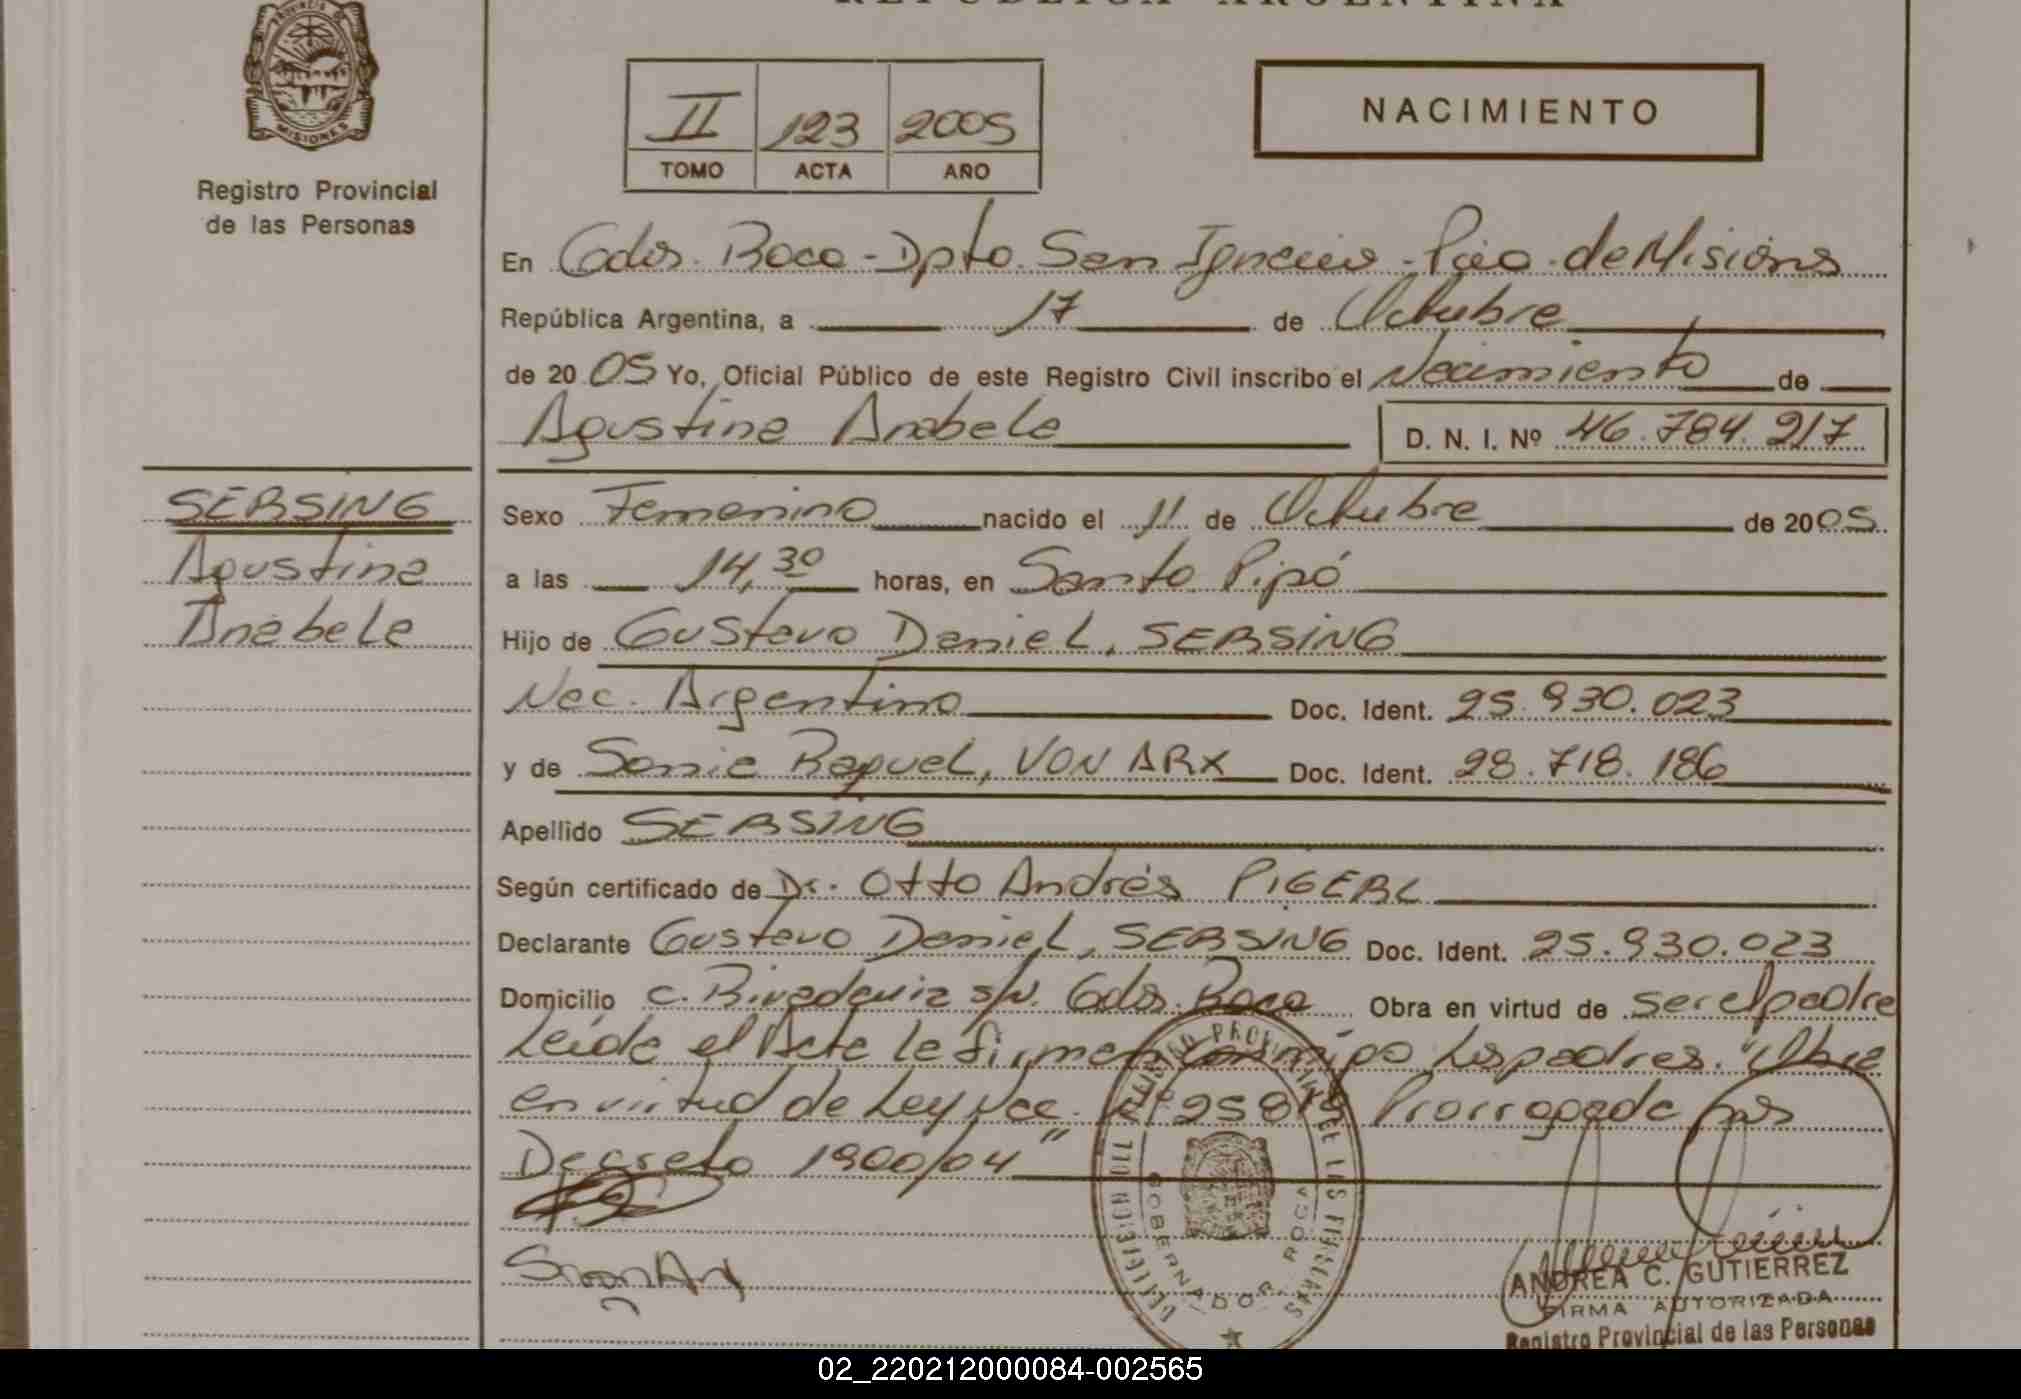 REPUBLICA ARGENTINA
PROVINCIA
MISIONES
Registro Provincial
de las Personas
II 123 2005
TOMO ACTA AÑO
NACIMIENTO
En Gdor. Roca - Dpto. San Ignacio - Pcia. de Misiones
República Argentina, a 17 de Octubre
de 2005 Yo, Oficial Público de este Registro Civil inscribo el Nacimiento de
Agustina Anabela D. N. I. Nº 46.784.217
SERSING
Agustina
Anabela
Sexo Femenino nacido el 11 de Octubre de 2005
a las 14,30 horas, en Santo Pipó
Hijo de Gustavo Daniel, SERSING
Nac. Argentino Doc. Ident. 25.930.023
y de Sonia Raquel, VON ARX Doc. Ident. 28.718.186
Apellido SERSING
Según certificado de Dr. Otto Andrés PIGERL
Declarante Gustavo Daniel, SERSING Doc. Ident. 25.930.023
Domicilio C. Rivadavia s/N. Gdor. Roca Obra en virtud de ser el padre
Leída el Acta la firman conmigo los padres. "Obra
en virtud de Ley Nac. Nº 258 Prorrogada por
Decreto 1900/04"
DELEGACION DEL REGISTRO PROVINCIAL DE LAS PERSONAS
GOBERNADOR ROCA
ANDREA C. GUTIERREZ
FIRMA AUTORIZADA
Registro Provincial de las Personas
02_220212000084-002565